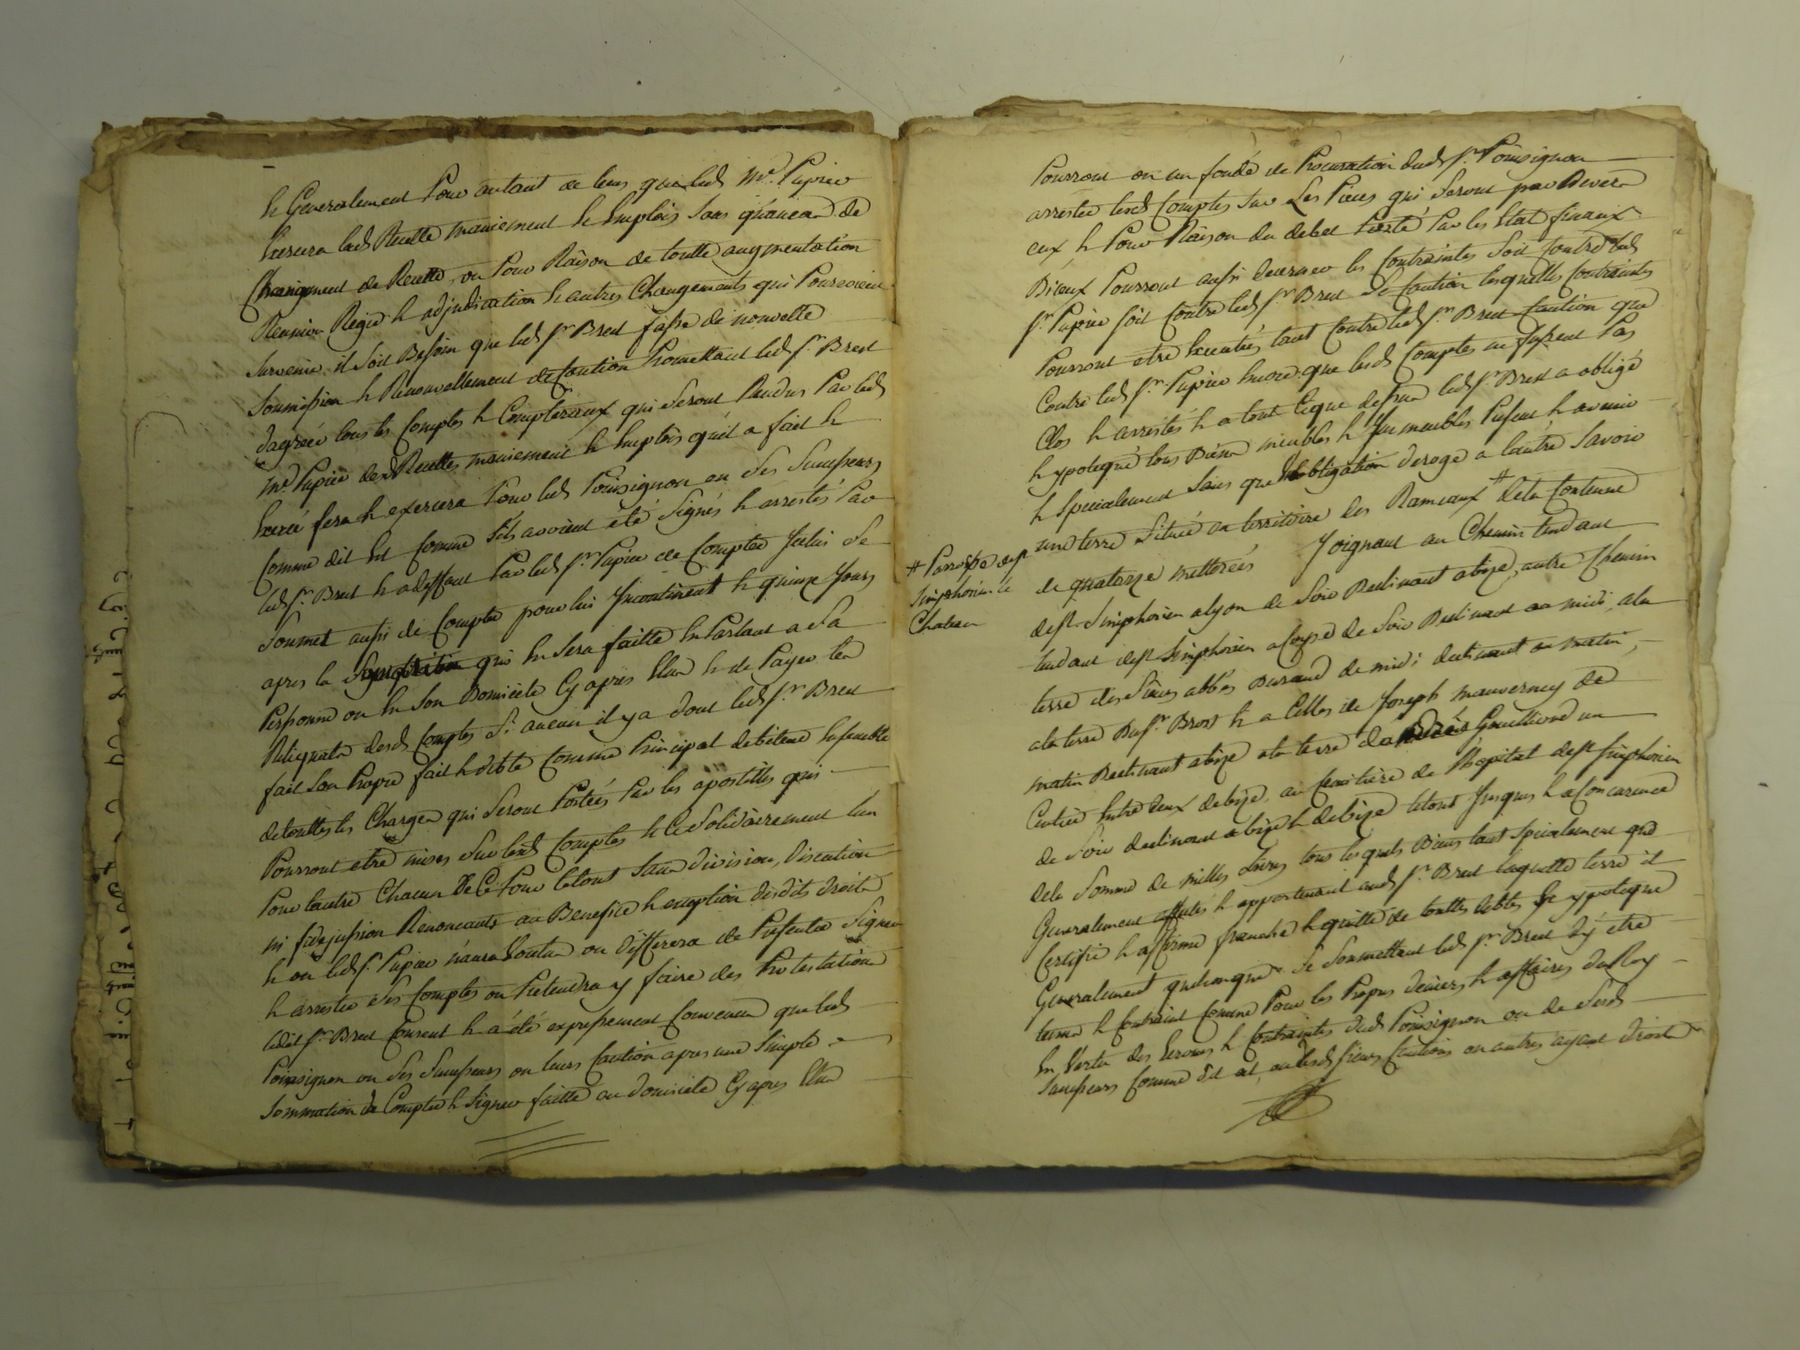 & Generalement Pour autant de tems que led. Mr. Papire
Exercera lad. Recette maniement & Emplois sans qu'aucun de
Changement de Recette, ou Pour Raison de toutte augmentation
Reunion Regie & adjudication & autres Changements qui Pourroient
survenir il soit Besoin que led. Sr. Breut fasse de nouvelle
soumission & Renouvellement de Caution Promettant led. Sr. Breut
d'agréer tous les Comptes & Compteraux qui seront Rendus Par led.
Mr. Papire desd. Recettes maniement & Emplois qu'il a fait &
Exercé fera & exercera Pour led. Poinsignon ou ses Successeurs
Comme dit Est Comme s'ils avoient été signés & arrestés Par
led. Sr. Breut & a deffaut Par led. Sr. Papire de Compter Icelui se
soumet aussi de Compter pour lui Incontinent & quinze Jours
apres la qui En sera faitte En Parlant a sa
Personne ou En son Domicile Cy apres Elu & de Payer les
Reliquats desd. Comptes si aucun il y a dont led. Sr. Breut
fait son Propre fait & debte Comme Principal debiteur Ensemble
de touttes les Charges qui seront Portées Par les apostilles qui
Pourront etre mises sur lesd. Comptes & Ce solidairement l'un
Pour l'autre Chacun de Ce Pour le tout sans division, discution
ni fidejussion Renonçants au Benefice & exception desdits droits
& ou led. Sr. Papire n'aura Voulu ou differera de Presenter signer
& arrester ses Comptes ou Pretendra y faire des Protestations
ledit Sr. Breut Consent & a été expressement Convenu que led.
Poinsignon ou ses Successeurs ou leurs Caution apres une simple
sommation de Compter & signer faitte au domicile Cy apres Elu
Pourront ou un fondé de Procuration dud. Sr. Poinsignon
arrester lesd. Comptes sur Les Pieces qui seront par Devers
eux, & Pour Raison du debet Porté Par les Etat finaux
D'iceux Pourront aussi decerner les Contraintes soit Contre led.
Sr. Papire soit Contre led. Sr. Breut Caution lesquelles Contraintes
Pourront etre Executées tant Contre led. Sr. Breut Caution que
Contre led. Sr. Papire Encore que lesd. Comptes ne fussent Pas
Clos & arrestés & a tout Ce que dessus led. Sr. Breut a obligé
hypotequé tous Biens meubles & Immeubles Present & avenir
& specialement sans que l'obligation deroge a l'autre Savoir
une terre située au territoire des Rameaux # de la Contenue
# Parroisse de St.
Simphorien le
Chateau
de quatorze metterées Joignant au Chemin tendant
de St. Simphorien a lyon de soir Declinant a bize, autre Chemin
tendant de St. Simphorien a de soir Declinant au midi, a la
terre des Sieurs abbés Durand de midi declinant au matin,
a la terre du Sr. Brost & a Celles de Joseph mauvernay de
matin Declinant a bize a la terre Guilliond un
Entre deux de bize, au Cimetière de l'hopital de St. Simphorien
de soir declinant a bize & de bize le tout Jusques & a Concurence
de la somme de milles Livres tous lesquels Biens tant specialement que
Generalement affectés & appartenant aud. Sr. Breut laquelle terre il
Certifie & affirme franche & quitte de touttes debtes & ypoteques
Generalement quelconques se soumettant led. Sr. Breut d'y etre
tenu & Contraint Comme Pour les Propres deniers & affaires du Roy
En Vertu des & Contraintes dud. Poinsignon ou de sesd.
Successeurs Comme dit est, ou lesd. sieurs Cautions ou autres ayant droits